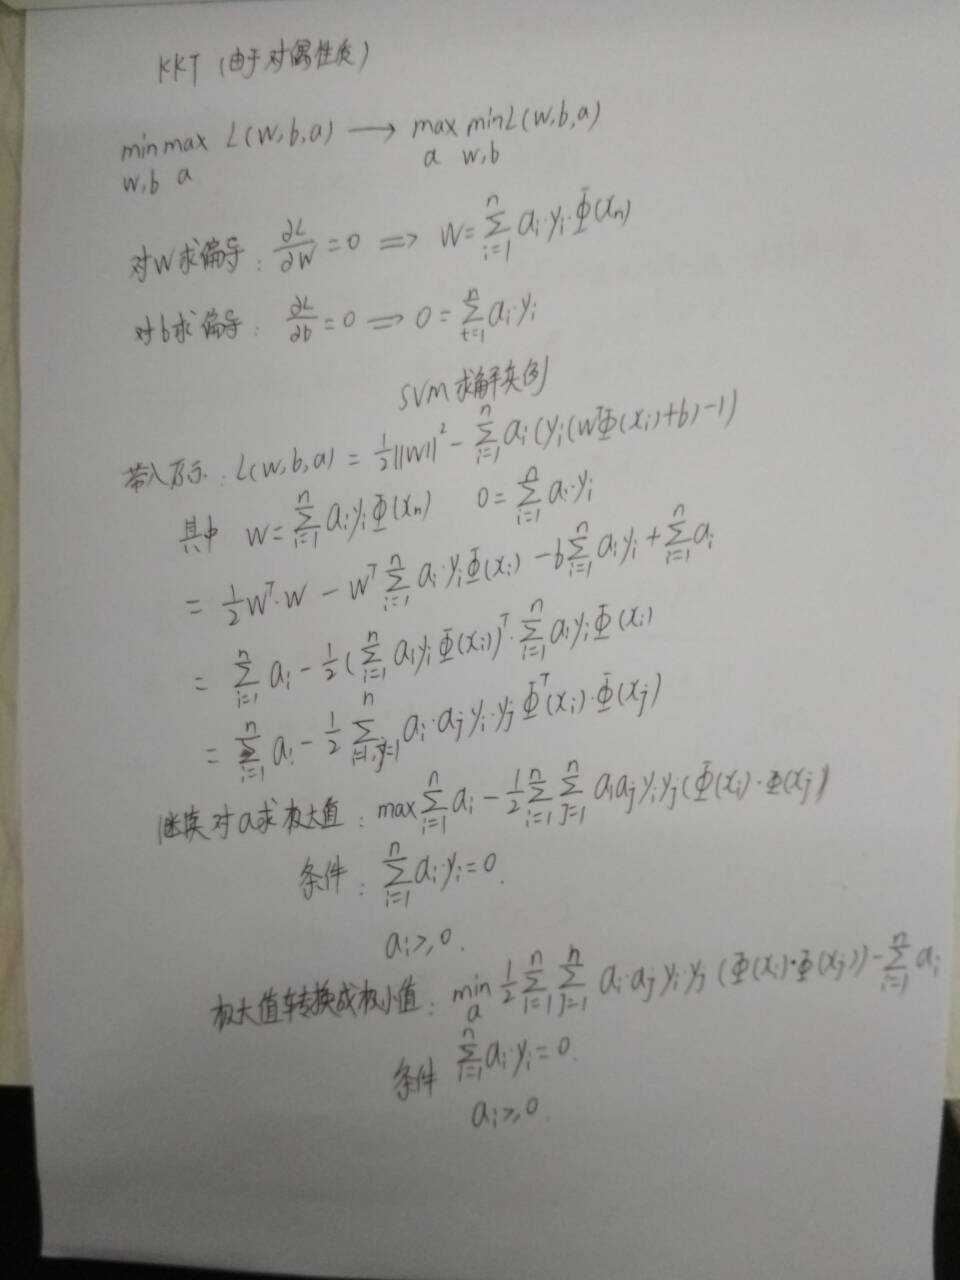 KKT (由于对偶性质)
min max L(w,b,a) → max min L(w,b,a)
w,b a a w,b
对w求偏导: ∂L/∂w = 0 ⇒ w = Σ_{i=1}^{n} a_i·y_i·Φ(x_n)
对b求偏导: ∂L/∂b = 0 ⇒ 0 = Σ_{i=1}^{n} a_i·y_i
SVM求解实例
带入原式: L(w,b,a) = 1/2||w||² - Σ_{i=1}^{n} a_i(y_i(w^TΦ(x_i)+b)-1)
其中 w = Σ_{i=1}^{n} a_i y_i Φ(x_n) 0 = Σ_{i=1}^{n} a_i·y_i
= 1/2 w^T·w - w^T Σ_{i=1}^{n} a_i·y_i Φ(x_i) - b Σ_{i=1}^{n} a_i y_i + Σ_{i=1}^{n} a_i
= Σ_{i=1}^{n} a_i - 1/2 (Σ_{i=1}^{n} a_i y_i Φ(x_i))^T · Σ_{i=1}^{n} a_i y_i Φ(x_i)
= Σ_{i=1}^{n} a_i - 1/2 Σ_{i=1,j=1}^{n} a_i·a_j y_i·y_j Φ^T(x_i)·Φ(x_j)
继续对a求极大值: max Σ_{i=1}^{n} a_i - 1/2 Σ_{i=1}^{n} Σ_{j=1}^{n} a_i a_j y_i y_j (Φ(x_i)·Φ(x_j))
条件: Σ_{i=1}^{n} a_i·y_i = 0.
a_i ≥ 0.
极大值转换成极小值: min_a 1/2 Σ_{i=1}^{n} Σ_{j=1}^{n} a_i·a_j y_i·y_j (Φ(x_i)·Φ(x_j)) - Σ_{i=1}^{n} a_i
条件 Σ_{i=1}^{n} a_i·y_i = 0.
a_i ≥ 0.